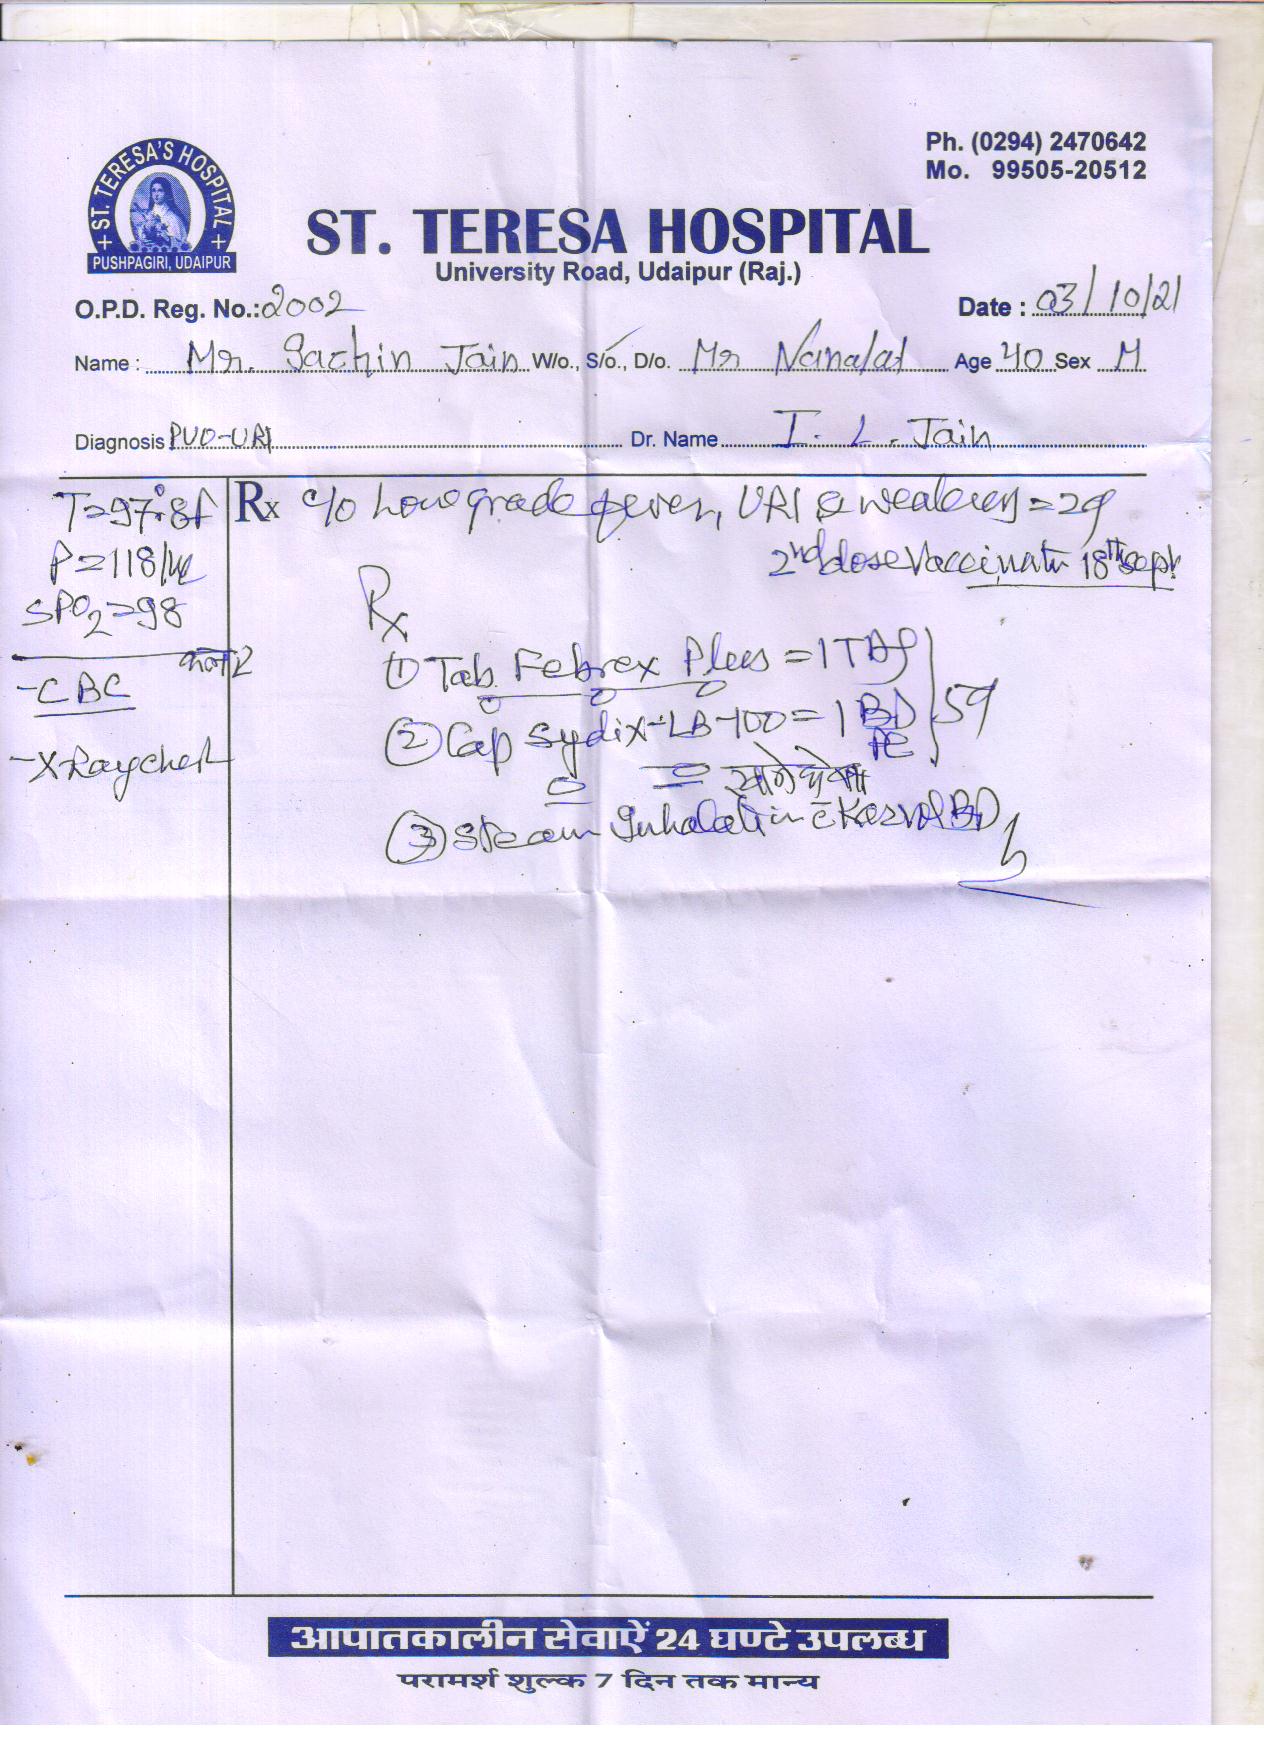 Ph. (0294) 2470642
Mo. 99505-20512
ST. TERESA'S HOSPITAL
PUSHPAGIRI, UDAIPUR
ST. TERESA HOSPITAL
University Road, Udaipur (Raj.)
O.P.D. Reg. No.: 2002 Date : 03/10/21
Name : Mr. Sachin Jain W/o., S/o., D/o. Mr Nanalal Age 40 Sex M
Diagnosis PUO-URI Dr. Name I. L. Jain
T=97.8f
P=118/
SPO2=98
-CBC
-X-Ray chest
Rx c/o Low grade fever, URI & =
2nd dose Vaccinatn 18th Sept
Rx
(1) Tab. Febrex Plus = 1 TDS
(2) Cap Sydix-LB-100 = 1 BD
(3) Steam Inhalation c Karvol BD
आपातकालीन सेवाऐं 24 घण्टे उपलब्ध
परामर्श शुल्क 7 दिन तक मान्य